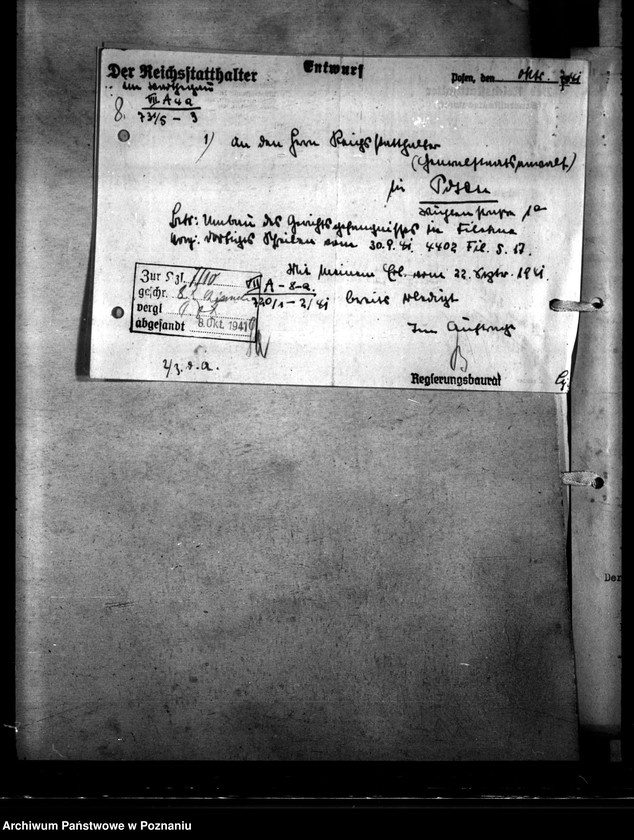 Der Reichsstatthalter
im Warthegau
Entwurf
Posen, den Okt. 1941
VII A 4 a
731/5 - 3
8.
1) An den Herrn Reichsstatthalter
(Generalstaatsanwalt)
in Posen
Betr: Umbau des Gerichtsgefängnisses in Filehne
Vorg: Dortiges Schreiben vom 30.9.41 4402 Fil. S. 17.
Mit meinem Erl. vom 22. Septbr. 1941
VII A - 8 - a.
720/1 - 2/41 bereits erledigt
Zur Szl. 7/10
geschr. 8.
vergl
abgesandt 8. Okt. 1941
Im Auftrage
B
2/ z. d. A.
Regierungsbaurat
Der
Archiwum Państwowe w Poznaniu